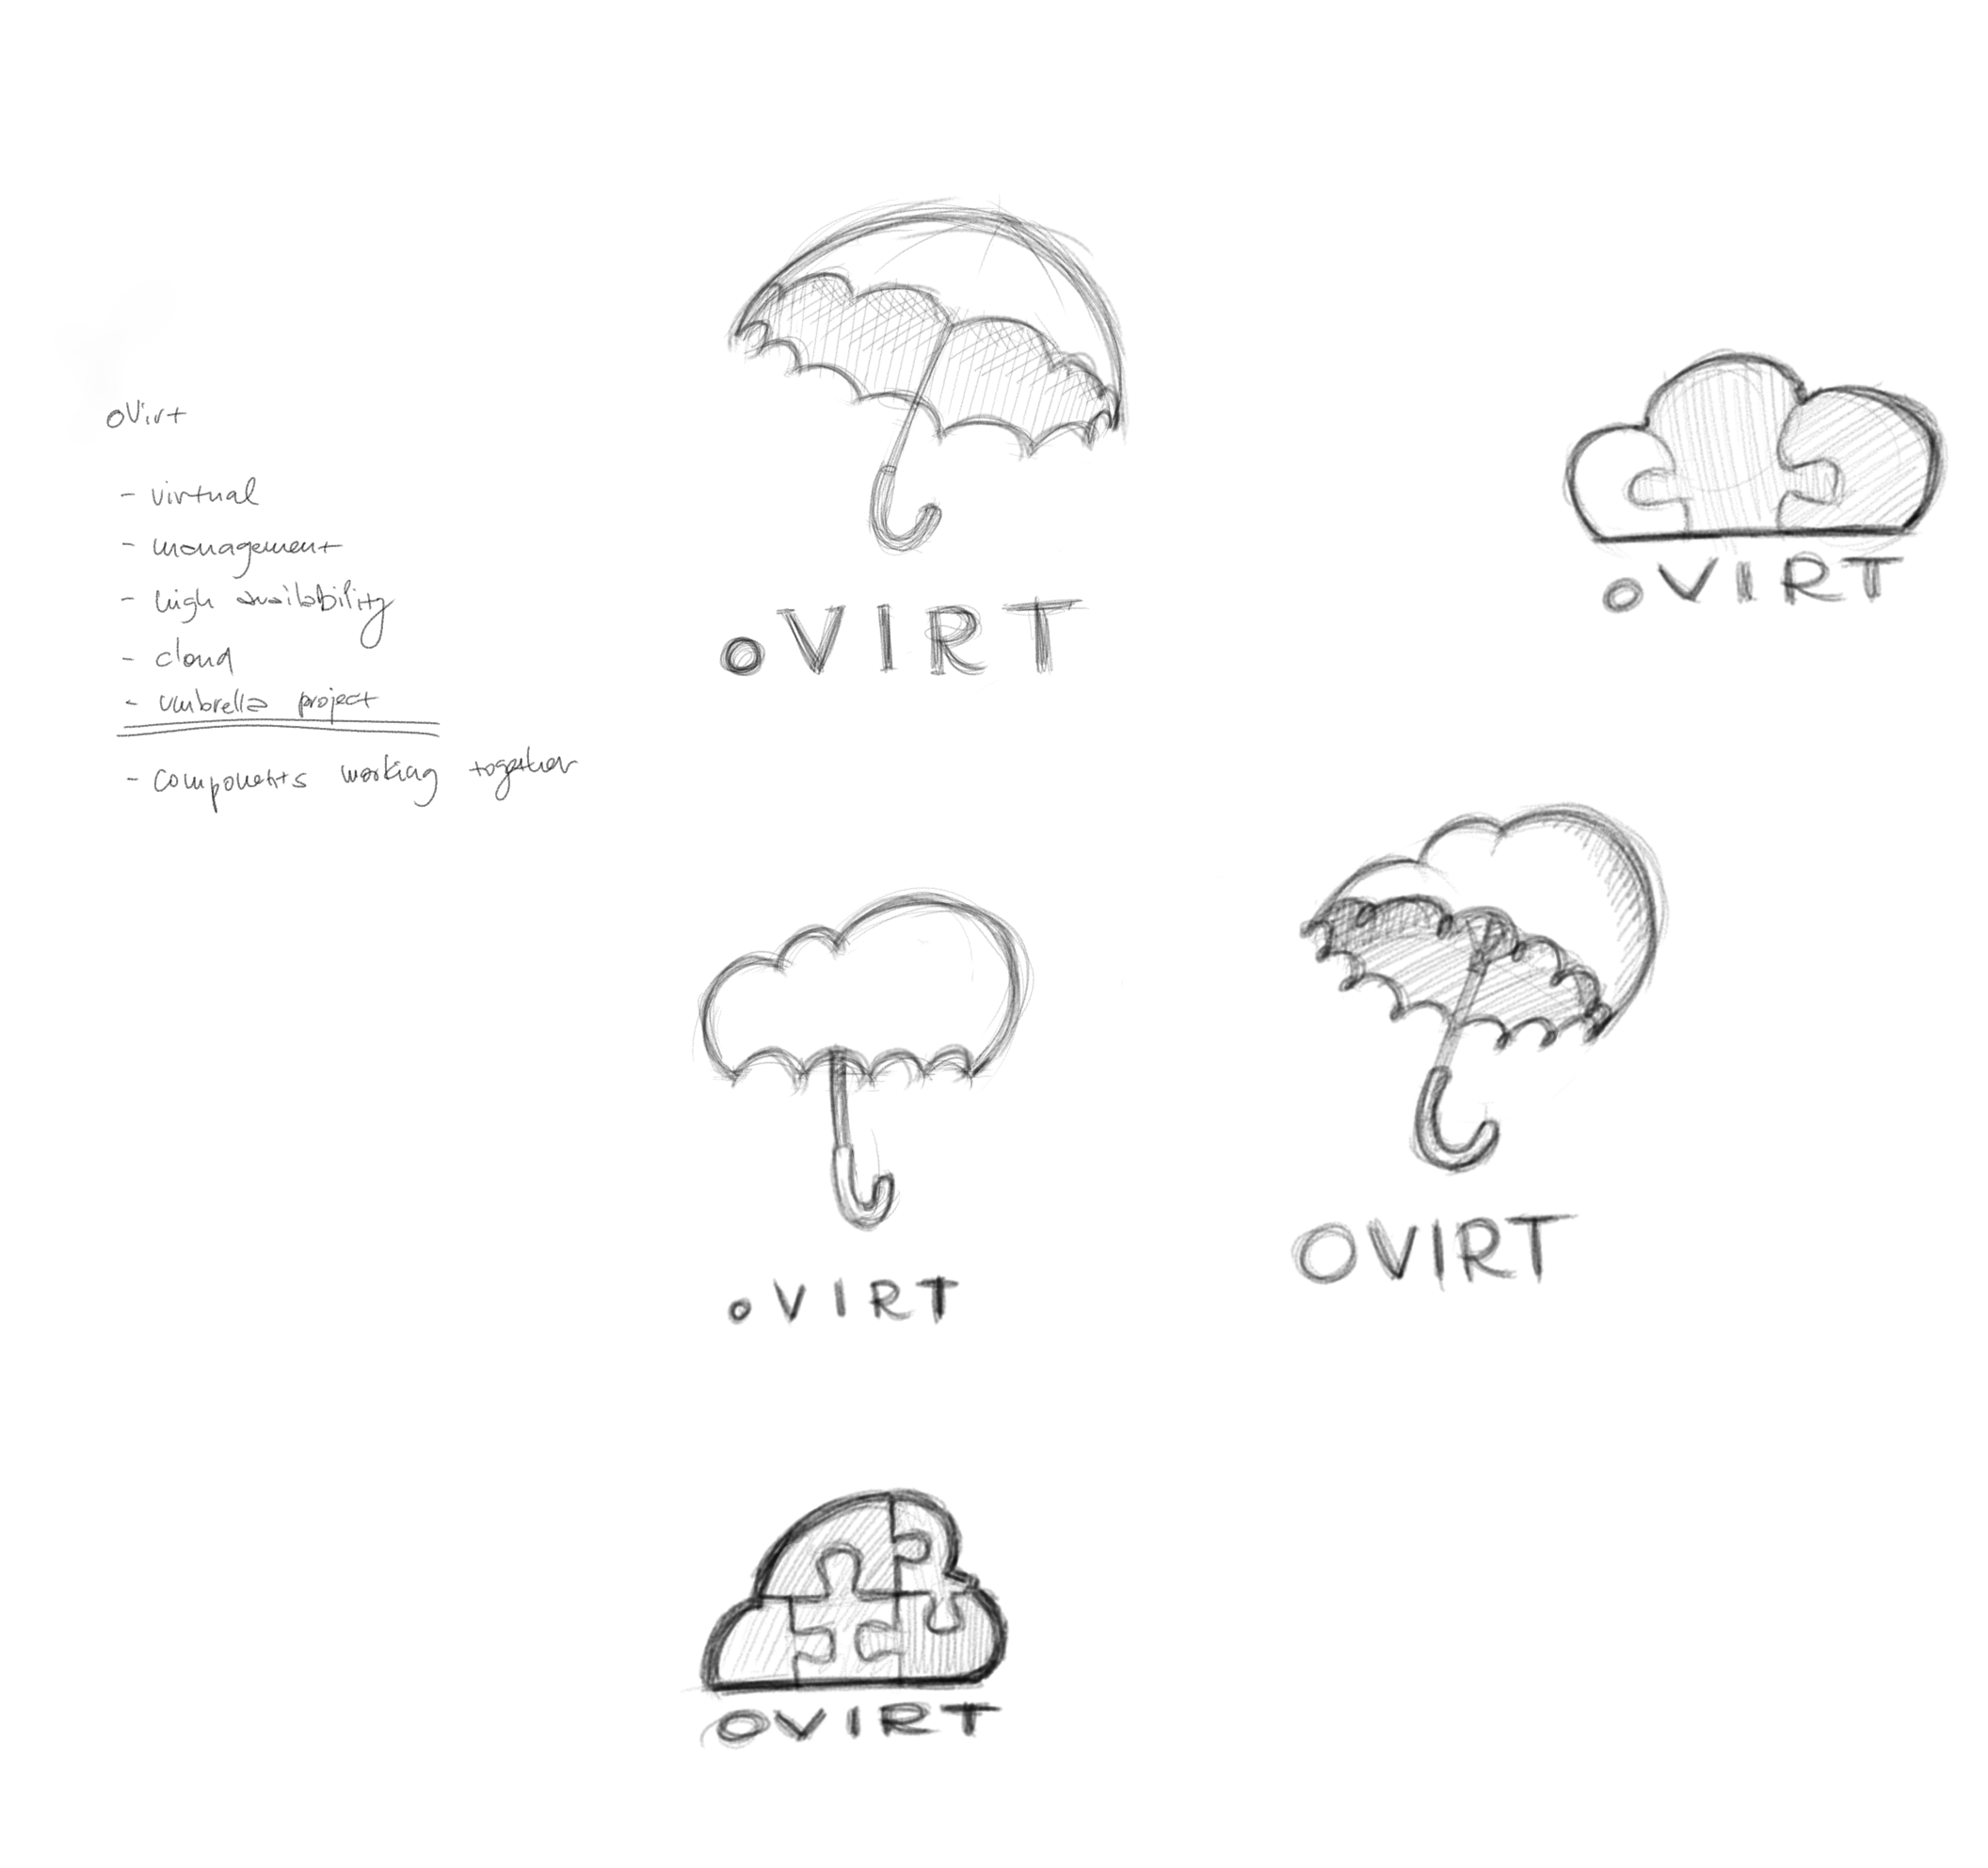 oVirt
- virtual
- management
- high availability
- cloud
- umbrella project
- components working together
oVIRT
oVIRT
oVIRT
OVIRT
OVIRT